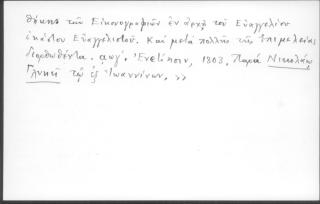 θήκης τῶν Εἰκονογραφιῶν ἐν ἀρχῇ τοῦ Εὐαγγελίου
ἑκάστου Εὐαγγελιστοῦ. Καὶ μετὰ πολλῆς τῆς ἐπιμελείας
διορθωθέντα. αωγʹ. Ἐνετίῃσιν, 1803. Παρὰ Νικολάῳ
Γλυκεῖ τῷ ἐξ Ἰωαννίνων. >>